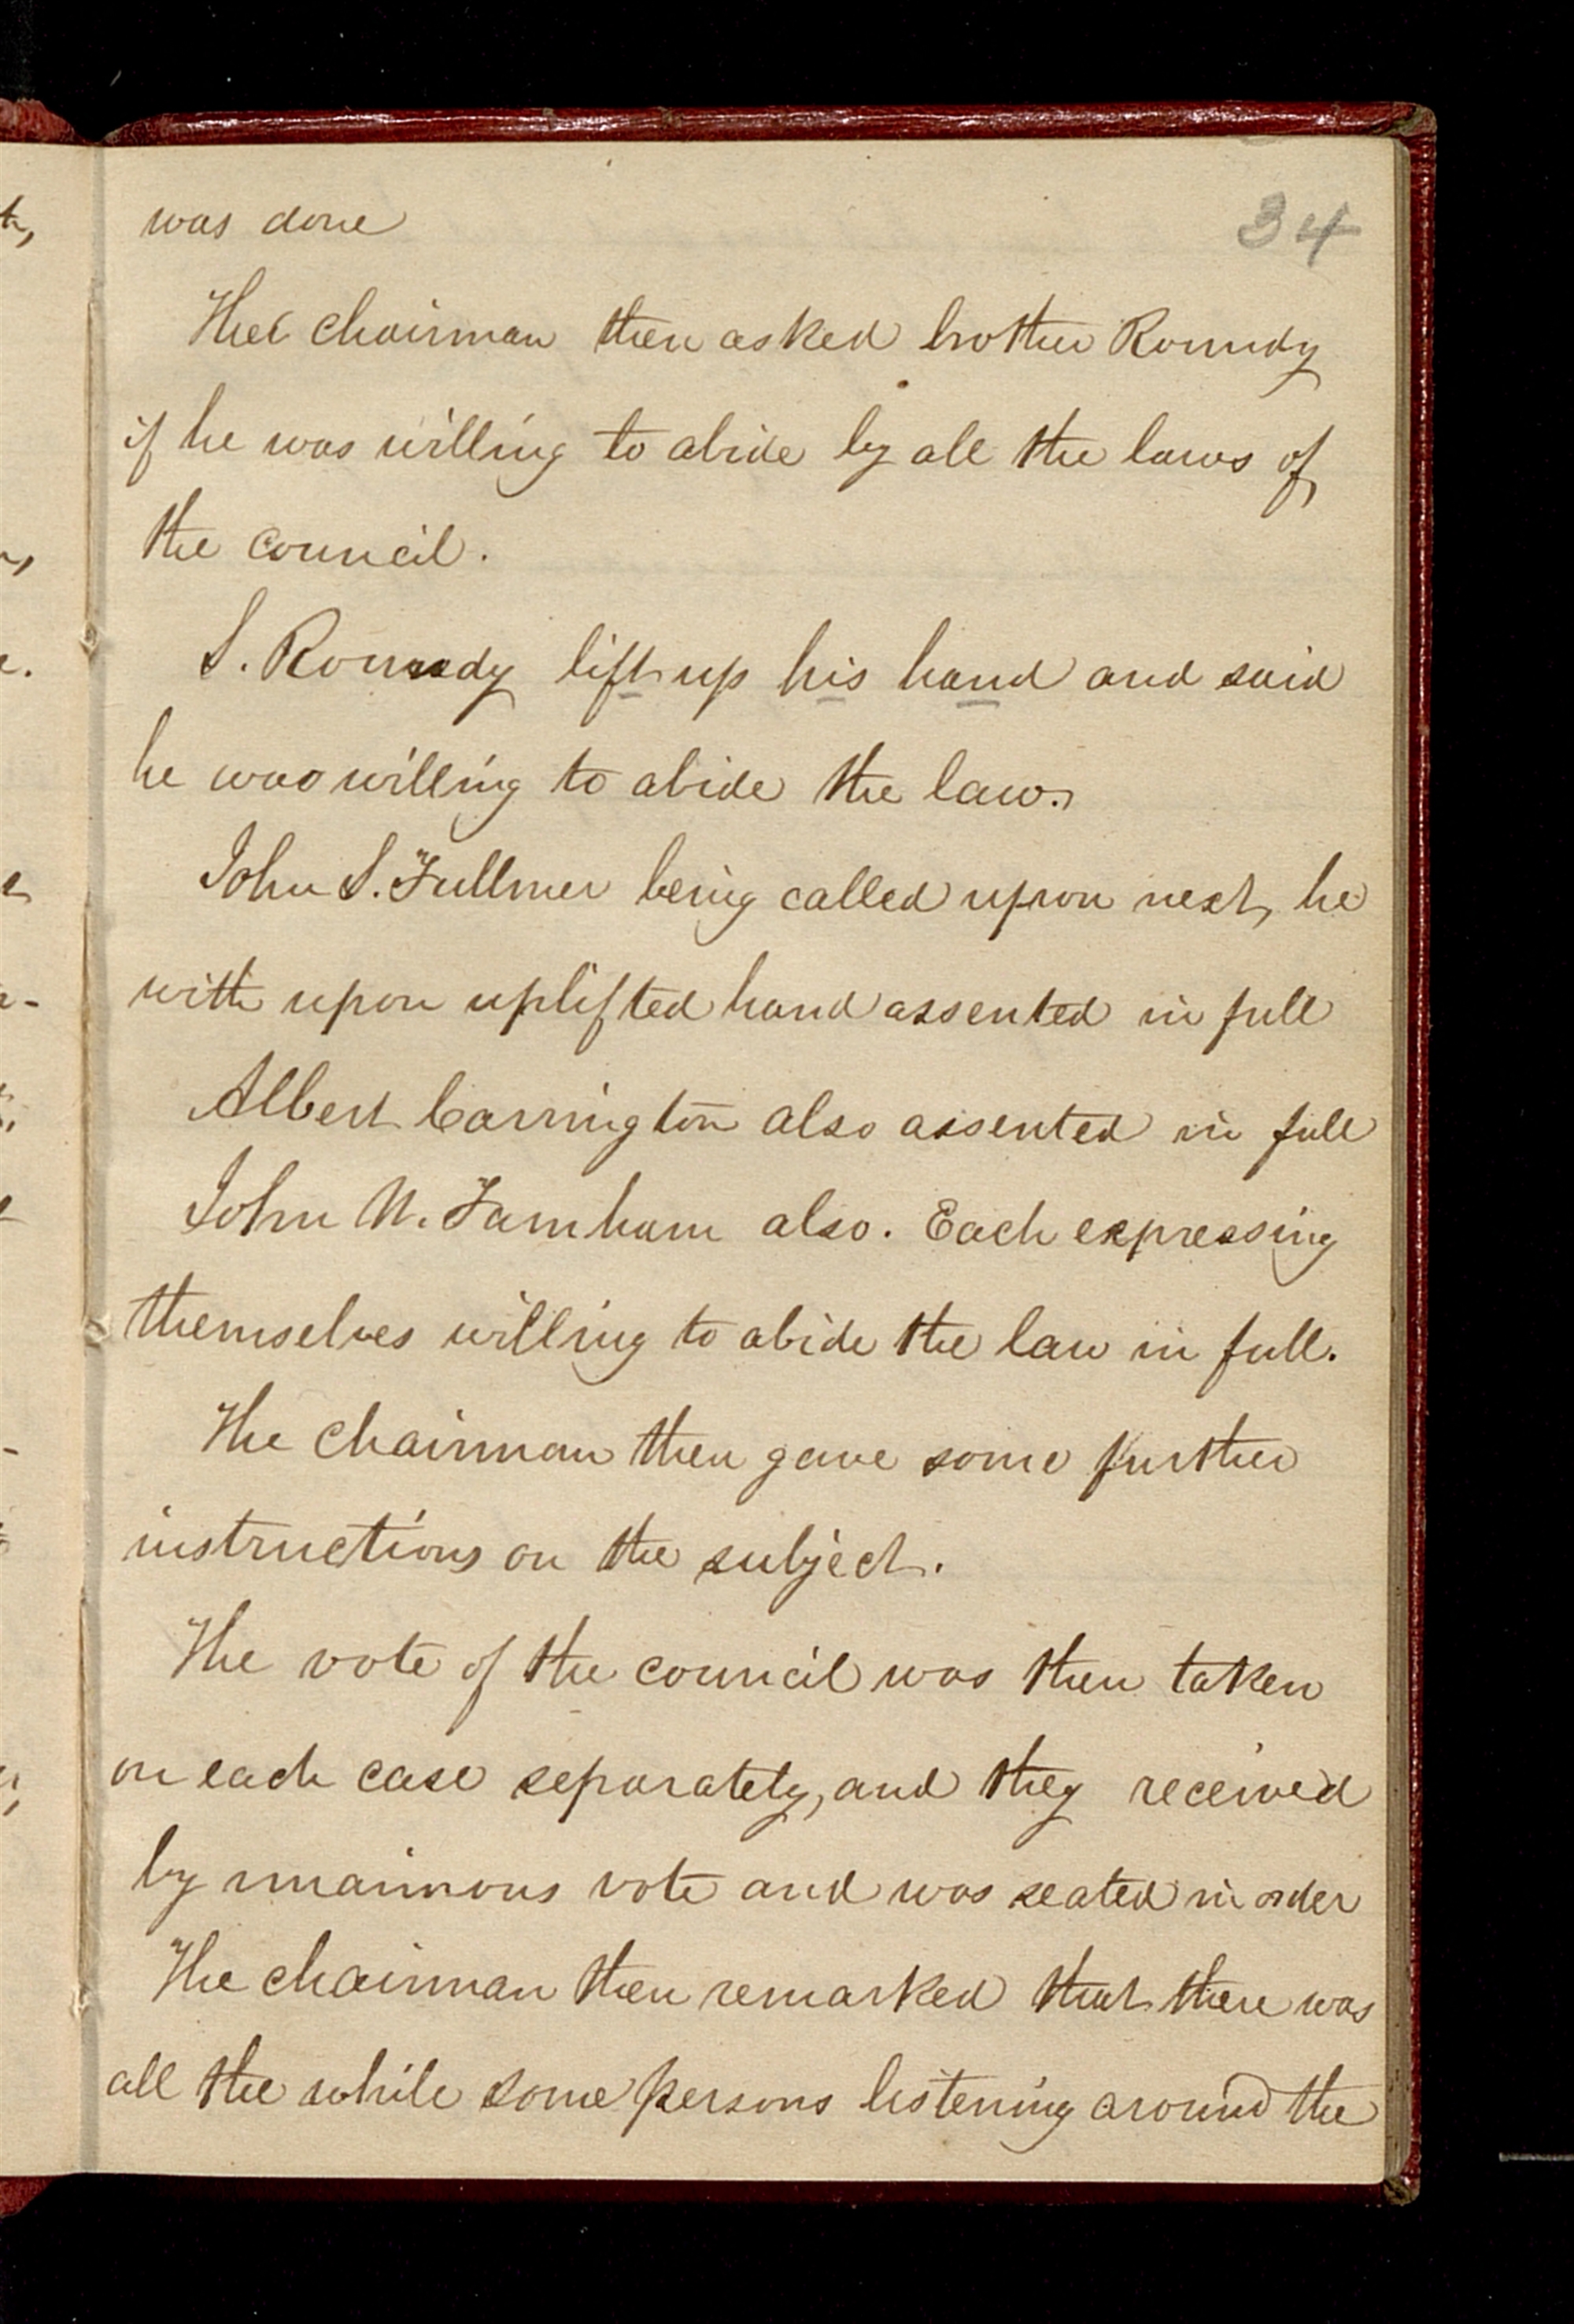 34
was done
The chairman then asked brother Roundy
if he was willing to abide by all the laws of
the council.
S. Roundy lift up his hand and said
he was willing to abide the law.
John S. Fullmer being called upon next, he
with upon uplifted hand assented in full
Albert Carrington also assented in full
John W. Farnham also. Each expressing
themselves willing to abide the law in full.
The chairman then gave some further
instructions on the subject.
The vote of the council was then taken
on each case separately, and they received
by unaimous vote and was seated in order
The chairman then remarked that there was
all the while some persons listening around the